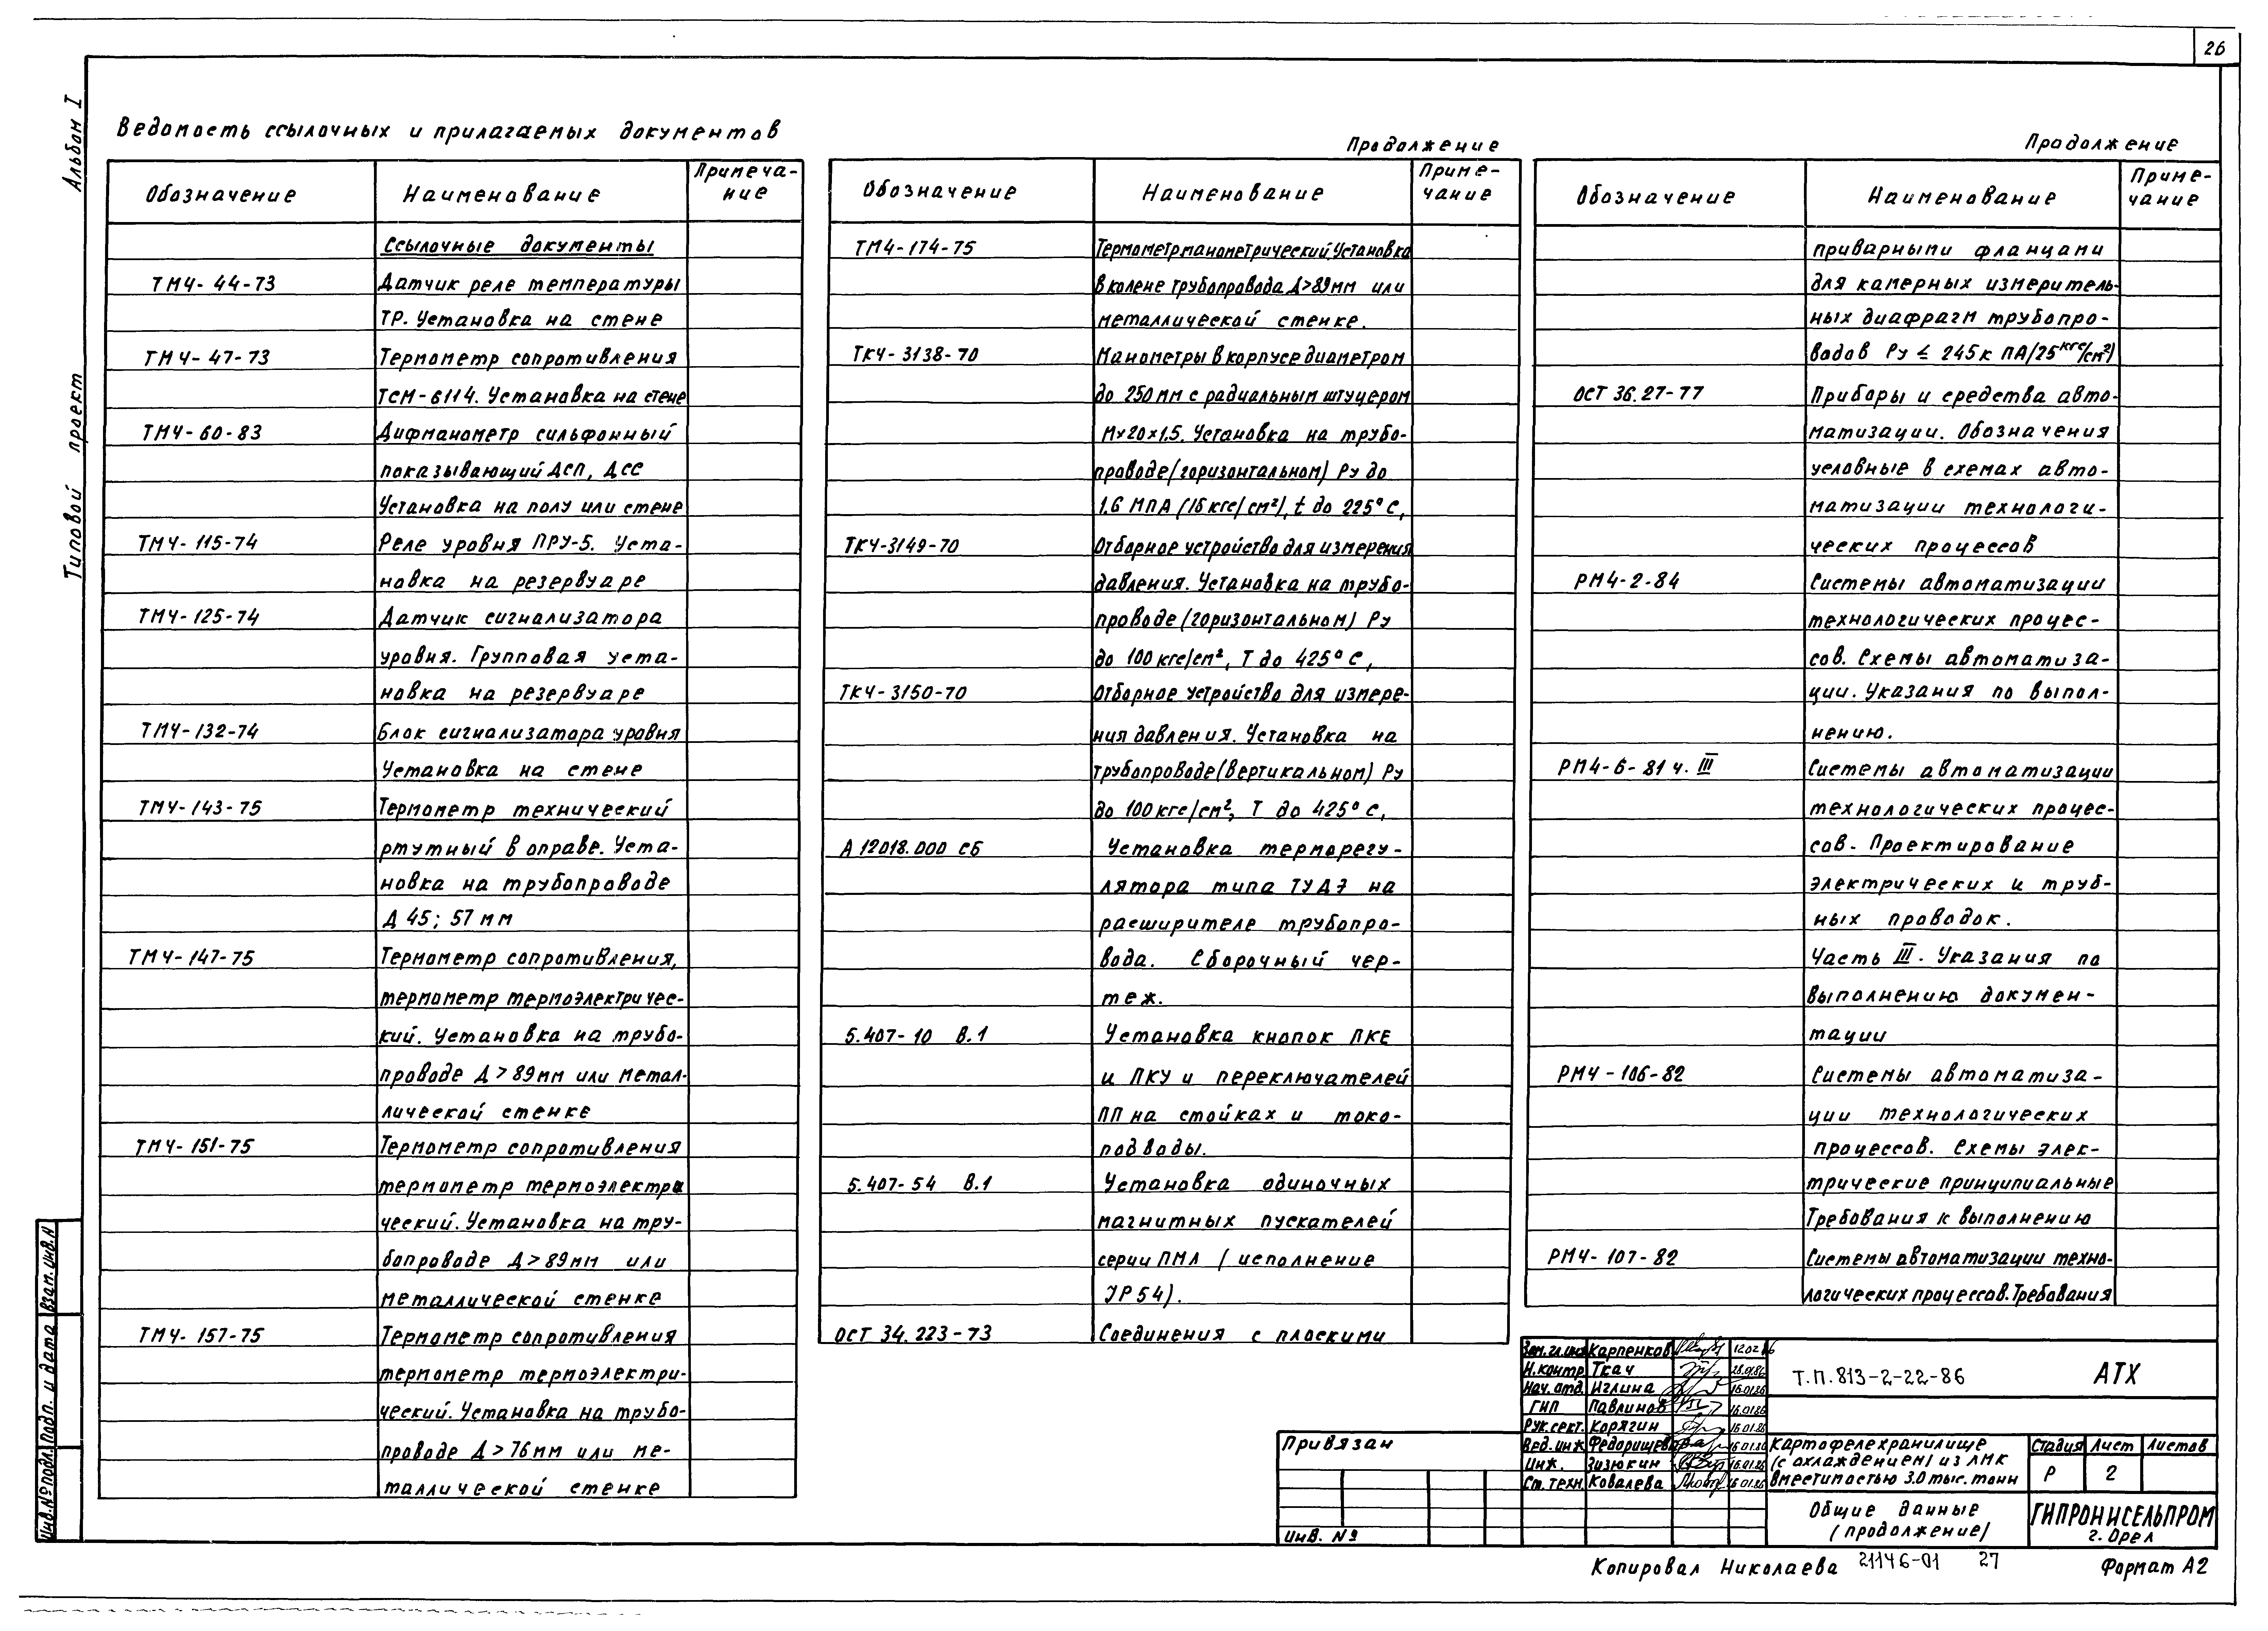 26
Альбом I
Типовой проект
Ведомость ссылочных и прилагаемых документов
Обозначение Наименование Примеча-
ние
Ссылочные документы
ТМ4-44-73 Датчик реле температуры
ТР. Установка на стене
ТМ4-47-73 Термометр сопротивления
ТСМ-6114. Установка на стене
ТМ4-60-83 Дифманометр сильфонный
показывающий ДСП, ДСС
Установка на полу или стене
ТМ4-115-74 Реле уровня ПРУ-5. Уста-
новка на резервуаре
ТМ4-125-74 Датчик сигнализатора
уровня. Групповая уста-
новка на резервуаре
ТМ4-132-74 Блок сигнализатора уровня
Установка на стене
ТМ4-143-75 Термометр технический
ртутный в оправе. Уста-
новка на трубопроводе
Д 45; 57 мм
ТМ4-147-75 Термометр сопротивления,
термометр термоэлектричес-
кий. Установка на трубо-
проводе Д > 89мм или метал-
лической стенке
ТМ4-151-75 Термометр сопротивления
термометр термоэлектри
ческий. Установка на тру-
бопроводе Д > 89мм или
металлической стенке
ТМ4-157-75 Термометр сопротивления
термометр термоэлектри-
ческий. Установка на трубо-
проводе Д > 76мм или ме-
таллической стенке
Продолжение
Обозначение Наименование Приме-
чание
ТМ4-174-75 Термометр манометрический. Установка
в колене трубопровода Д>89мм или
металлической стенке.
ТК4-3138-70 Манометры в корпусе диаметром
до 250мм с радиальным штуцером
М×20×1,5. Установка на трубо-
проводе (горизонтальном) Ру до
1.6 МПА (16 кгс/см²), t до 225°С,
ТК4-3149-70 Отборное устройство для измерения
давления. Установка на трубо-
проводе (горизонтальном) Ру
до 100 кгс/см², Т до 425°С,
ТК4-3150-70 Отборное устройство для измере-
ния давления. Установка на
трубопроводе (вертикальном) Ру
до 100 кгс/см², Т до 425°С,
А 12018.000 СБ Установка терморегу-
лятора типа ТУДЭ на
расширителе трубопро-
вода. Сборочный чер-
теж.
5.407-10 В.1 Установка кнопок ПКЕ
и ПКУ и переключателей
ПП на стойках и токо-
подводы.
5.407-54 В.1 Установка одиночных
магнитных пускателей
серии ПМЛ (исполнение
УР54).
ОСТ 34.223-73 Соединения с плоскими
Продолжение
Обозначение Наименование Приме-
чание
приварными фланцами
для камерных измеритель-
ных диафрагм трубопро-
водов Ру ≤ 245к ПА/25кгс/см²)
ОСТ 36.27-77 Приборы и средства авто-
матизации. Обозначения
условные в схемах авто-
матизации технологи-
ческих процессов
РМ4-2-84 Системы автоматизации
технологических процес-
сов. Схемы автоматиза-
ции. Указания по выпол-
нению.
РМ4-6-81 ч. III Системы автоматизации
технологических процес-
сов. Проектирование
электрических и труб-
ных проводок.
Часть III. Указания по
выполнению докумен-
тации
РМ4-106-82 Системы автоматиза-
ции технологических
процессов. Схемы элек-
трические принципиальные
Требования к выполнению
РМ4-107-82 Системы автоматизации техно-
логических процессов. Требования
Взам. инв. N
Подп. и дата
Инв. № подл.
Привязан
Инв. №
Зам. гл. инж Карпенков 12.02.86
Н. контр Ткач 28.01.86
Нач. отд. Иглина 16.01.86
ГИП Павлинов 16.01.86
Рук. сект. Корягин 16.01.86
Вед. инж Федорищева 16.01.86
Инж. Зизюкин 16.01.86
Ст. техн. Ковалева 16.01.86
Т.П. 813-2-22-86 АТХ
Картофелехранилище
(с охлаждением) из ЛМК
вместимостью 3.0 тыс. тонн
Стадия Лист Листов
Р 2
Общие данные
(продолжение)
ГИПРОНИСЕЛЬПРОМ
г. Орел
Копировал Николаева 21146-01 27 Формат А2